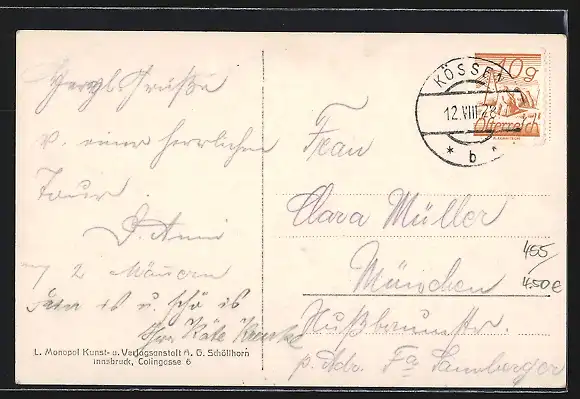 Herzl. Grüße
v. einer herrlichen
Tour.
D. Anni
2 Männern
Käte
L. Monopol Kunst- u. Verlagsanstalt A. G. Schöllhorn
Innsbruck, Colingasse 6
KÖSSEN
12.VIII.28
* b *
10g
Österreich
Frau
Clara Müller
München
Nußbaumstr.
p. Adr. Fa
455
4.50€